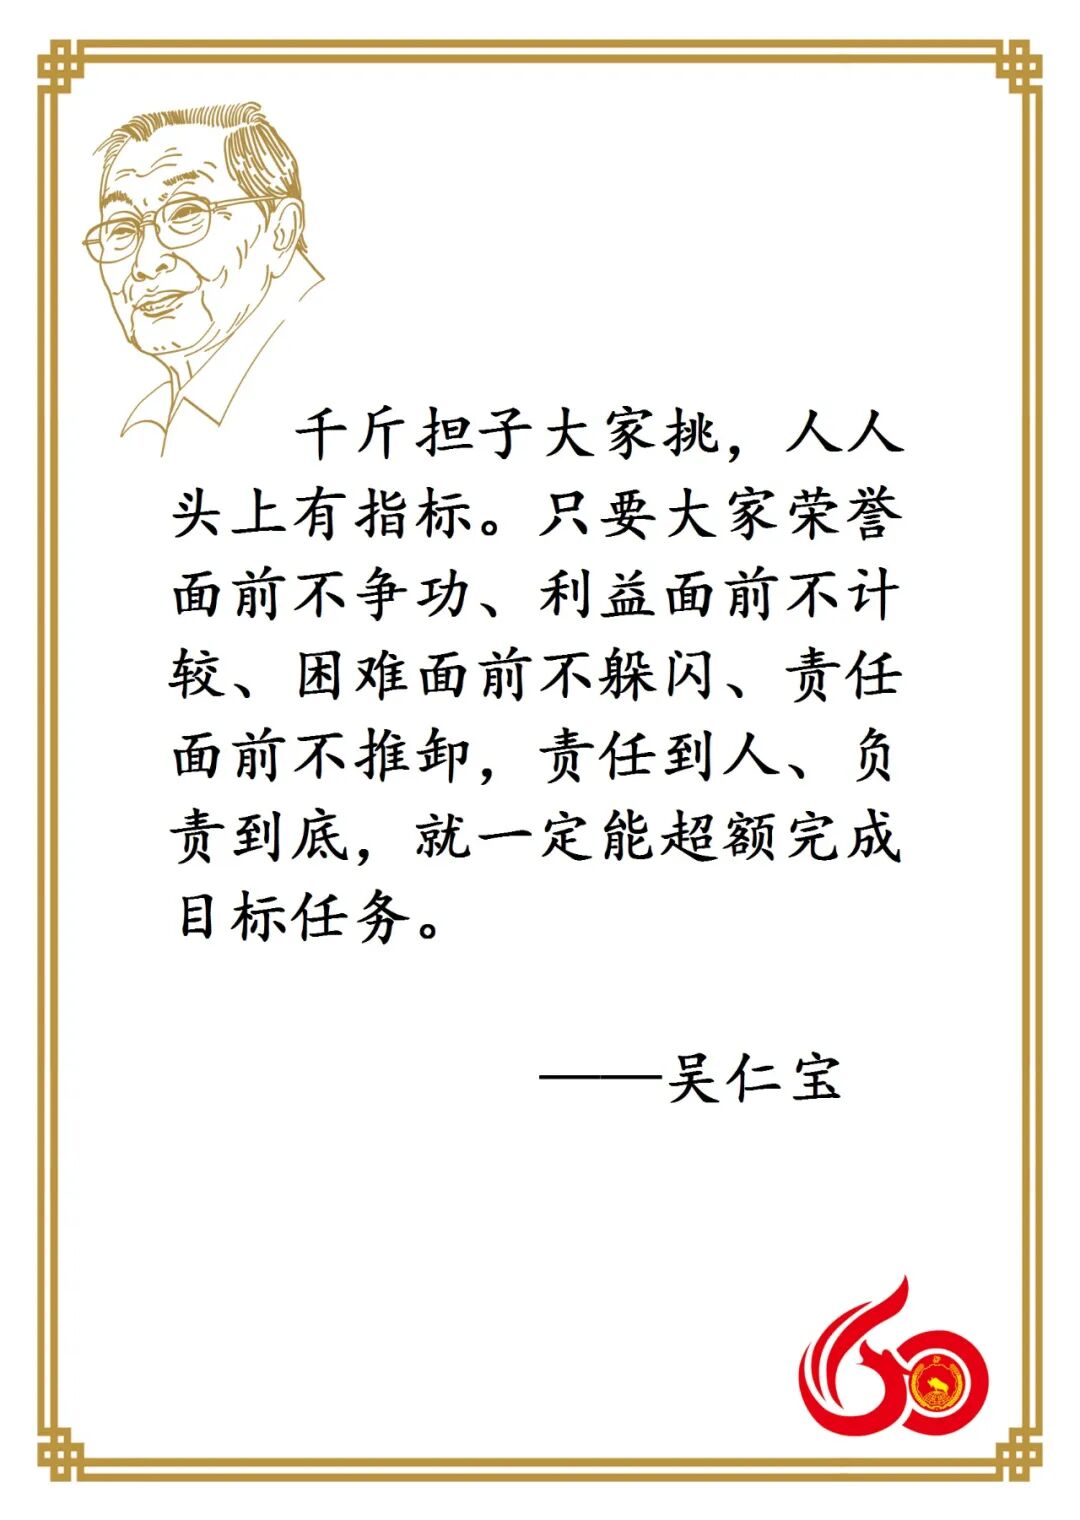 千斤担子大家挑，人人
头上有指标。只要大家荣誉
面前不争功、利益面前不计
较、困难面前不躲闪、责任
面前不推卸，责任到人、负
责到底，就一定能超额完成
目标任务。
——吴仁宝
60